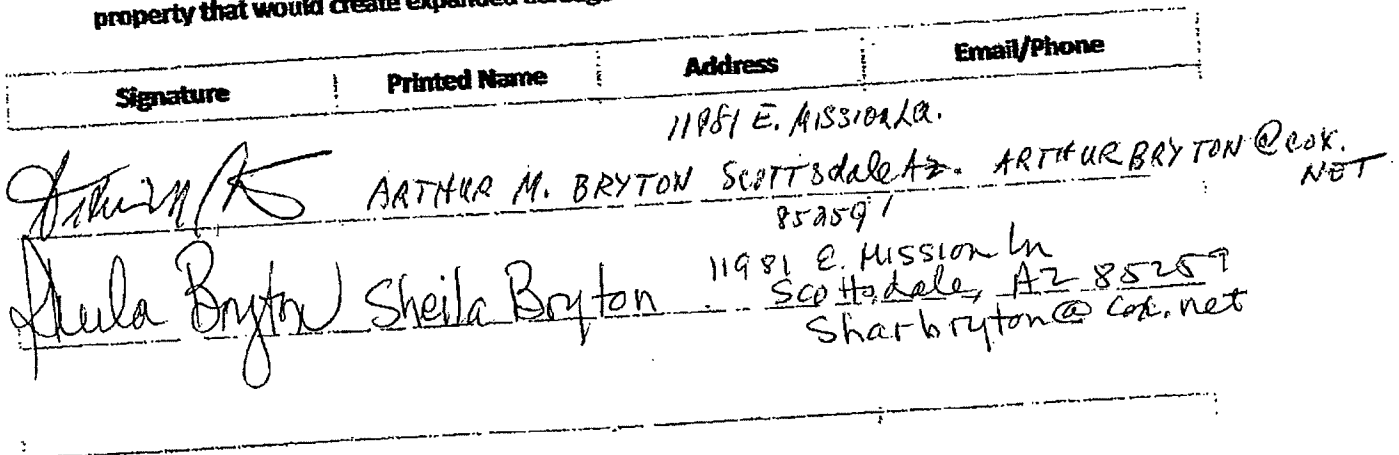 property that would create expanded acreage
Signature Printed Name Address Email/Phone
11981 E. MISSION LN.
ARTHUR M. BRYTON Scottsdale Az. ARTHURBRYTON@COX.
NET
85259
Sheila Bryton Sheila Bryton 11981 E. Mission Ln
Scottsdale, AZ 85259
Sharbryton@cox.net